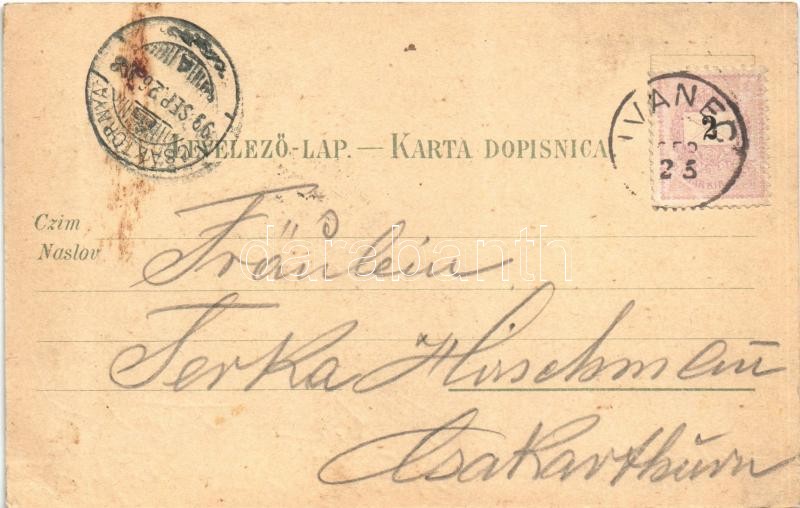 CSÁKTORNYA
99 SEP. 26
IVANEC
SEP
25
2
LEVELEZŐ-LAP. — KARTA DOPISNICA
Czim
Naslov
Fräulein
darabanth
Terka Hirschmann
Csakathurn